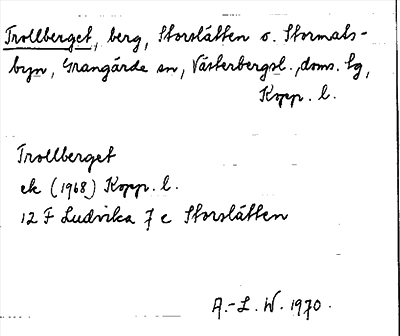 Trollberget, berg, Storslätten o. Stormats-
byn, Grangärde sn, Västerbergsl., doms. tg,
Kopp. l.
Trollberget
ek (1968) Kopp. l.
12 F Ludvika 7 c Storslätten
A.-L. W. 1970.